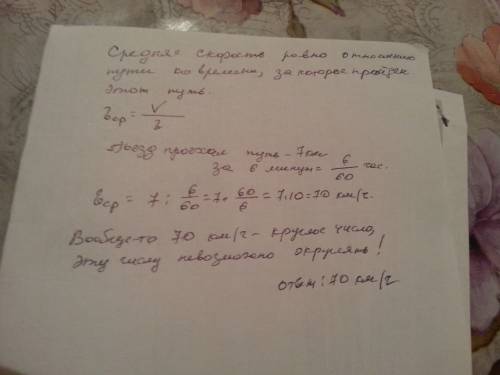 Средняя скорость равно отношению
пути ко времени, за которое пройден
этот путь.
tср = V/t
Поезд проехал путь - 7 км
за 6 минут = 6/60 час.
tср = 7 : 6/60 = 7 · 60/6 = 7·10 = 70 км/ч.
Вообще-то 70 км/ч - круглое число,
эту числу невозможно округлять!
ответ: 70 км/ч